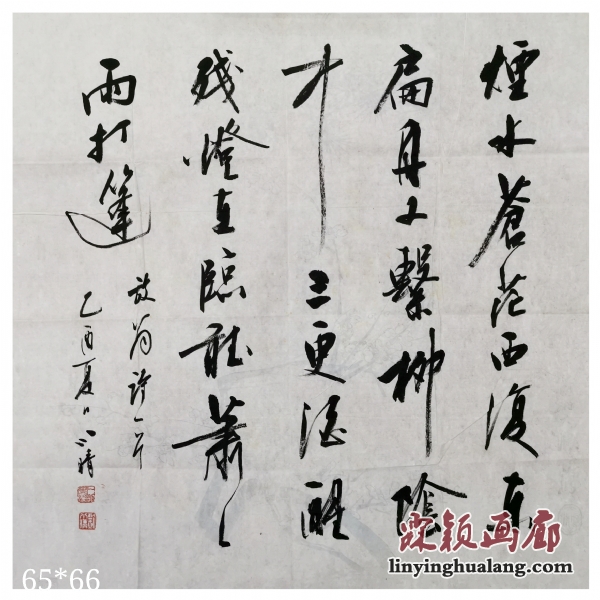 煙水蒼茫西復東
扁舟又繫柳陰
中三更酒醒
残燈在臥聽蕭〻
雨打篷
放翁詩一首
乙酉夏日
霖颖画廊
linyinghualang.com
65*66